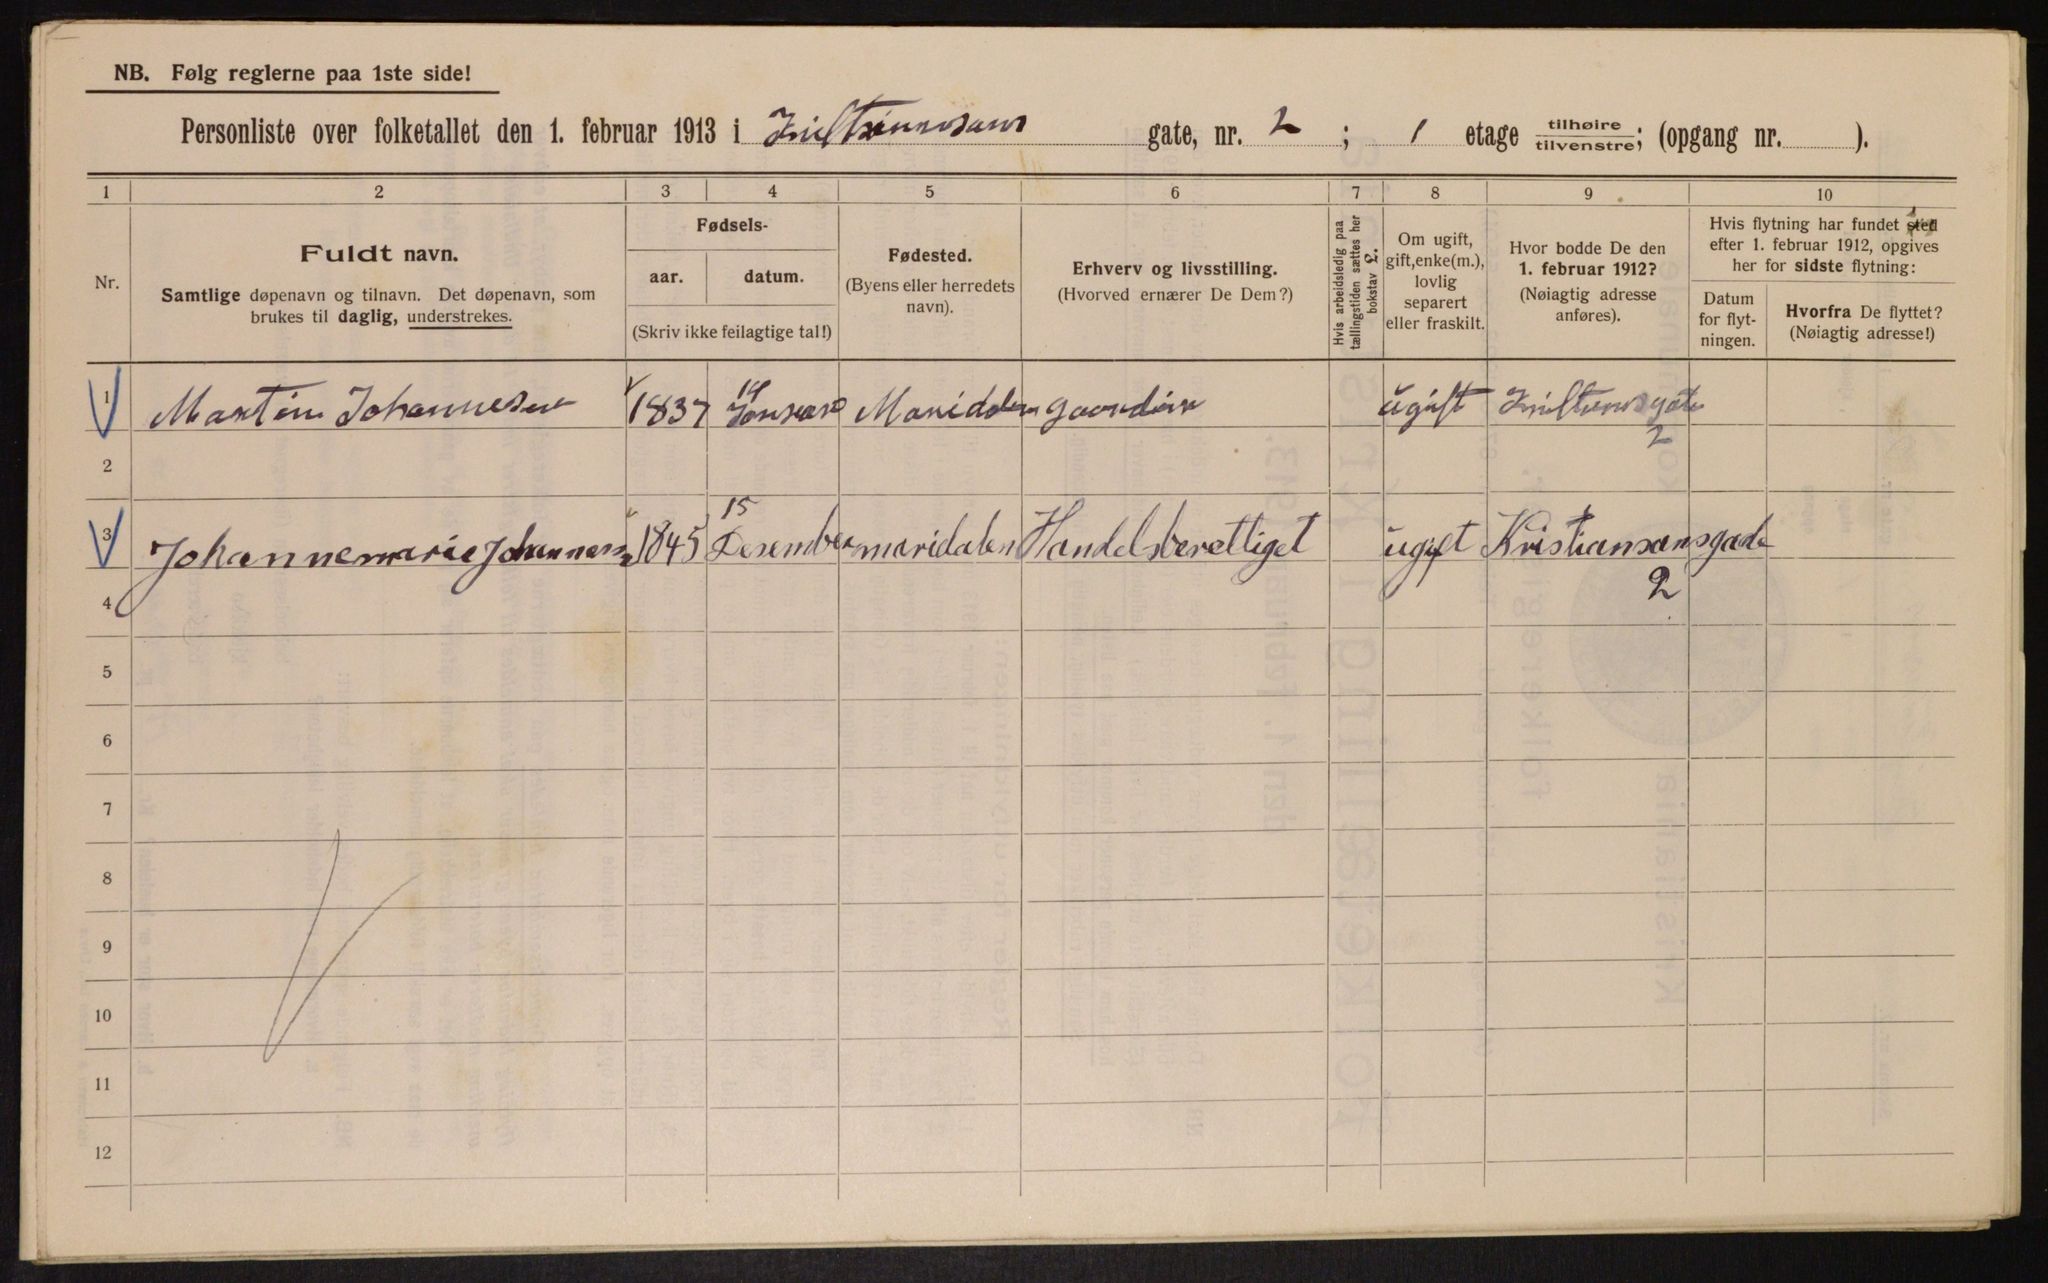 NB. Følg reglerne paa 1ste side!
Personliste over folketallet den 1. februar 1913 i gate, nr. 2; 1 etage tilhøire tilvenstre; (opgang nr. ).
1 2 3 4 5 6 7 8 9 10
Nr.
Fuldt navn.
Samtlige døpenavn og tilnavn. Det døpenavn, som
brukes til daglig, understrekes.
Fødsels-
aar. datum.
(Skriv ikke feilagtige tal!)
Fødested.
(Byens eller herredets
navn).
Erhverv og livsstilling.
(Hvorved ernærer De Dem?)
Hvis arbeidsledig paa
tællingstiden sættes her
bokstav L.
Om ugift,
gift, enke(m.),
lovlig
separert
eller fraskilt.
Hvor bodde De den
1. februar 1912?
(Nøiagtig adresse
anføres).
Hvis flytning har fundet sted
efter 1. februar 1912, opgives
her for sidste flytning:
Datum
for flyt-
ningen.
Hvorfra De flyttet?
(Nøiagtig adresse!)
1 Martin Johannesen 1837 14 ugift
2
2
3 Johannemarie Johannesen 1845 15 Desember maridalen Handelsberettiget ugift Kristiansansgade
2
4
5
6
7
8
9
10
11
12